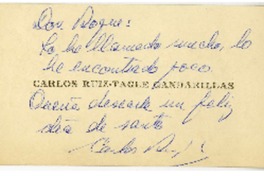 Don Roque:
Lo he llamado mucho, lo
he encontrado poco.
CARLOS RUIZ-TAGLE GANDARILLAS
Quería desearle un feliz
día de santo
Carlos Ruiz